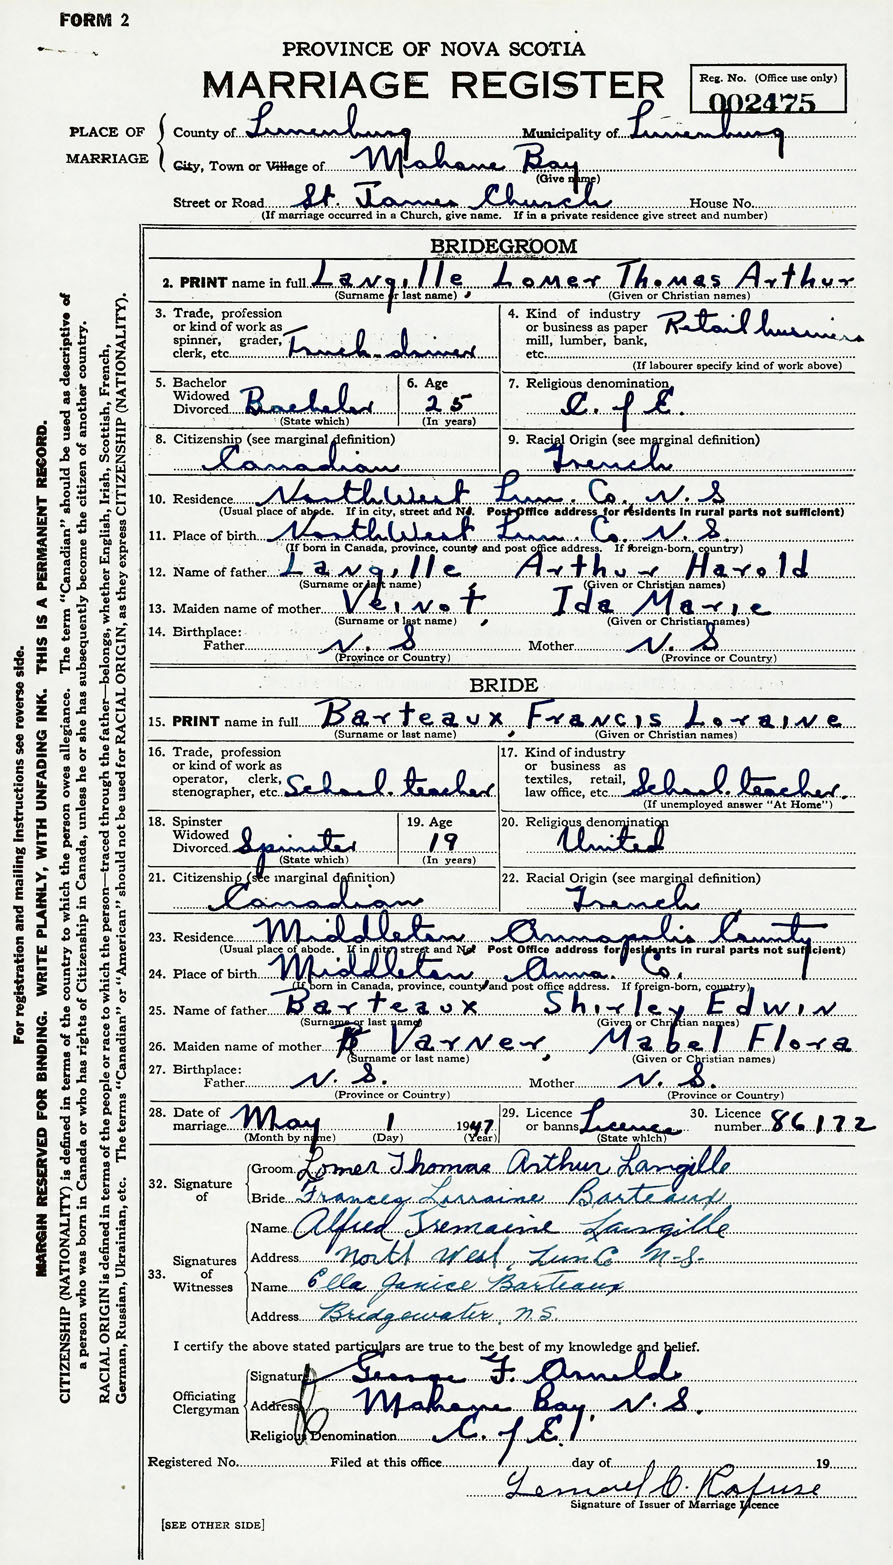 FORM 2
PROVINCE OF NOVA SCOTIA
MARRIAGE REGISTER
Reg. No. (Office use only)
002475
PLACE OF MARRIAGE
County of Lunenburg Municipality of Lunenburg
City, Town or Village of Mahone Bay
(Give name)
Street or Road St. James Church House No.
(If marriage occurred in a Church, give name. If in a private residence give street and number)
BRIDEGROOM
2. PRINT name in full Langille, Lomer Thomas Arthur
(Surname or last name) (Given or Christian names)
3. Trade, profession or kind of work as spinner, grader, clerk, etc. Truck-driver
4. Kind of industry or business as paper mill, lumber, bank, etc. Retail business
(If labourer specify kind of work above)
5. Bachelor Widowed Divorced Bachelor
(State which)
6. Age 25
(In years)
7. Religious denomination C. of E.
8. Citizenship (see marginal definition) Canadian
9. Racial Origin (see marginal definition) French
10. Residence NorthWest Lun. Co. N. S
(Usual place of abode. If in city, street and No. Post Office address for residents in rural parts not sufficient)
11. Place of birth NorthWest Lun. Co. N. S.
(If born in Canada, province, county and post office address. If foreign-born, country)
12. Name of father Langille, Arthur Harold
(Surname or last name) (Given or Christian names)
13. Maiden name of mother Veinot, Ida Marie
(Surname or last name) (Given or Christian names)
14. Birthplace:
Father N. S Mother N. S
(Province or Country) (Province or Country)
BRIDE
15. PRINT name in full Barteaux, Francis Loraine
(Surname or last name) (Given or Christian names)
16. Trade, profession or kind of work as operator, clerk, stenographer, etc. School. teacher
17. Kind of industry or business as textiles, retail, law office, etc. School. teacher.
(If unemployed answer "At Home")
18. Spinster Widowed Divorced Spinster
(State which)
19. Age 19
(In years)
20. Religious denomination United
21. Citizenship (see marginal definition) Canadian
22. Racial Origin (see marginal definition) French
23. Residence Middleton Annapolis County
(Usual place of abode. If in city, street and No. Post Office address for residents in rural parts not sufficient)
24. Place of birth Middleton, Anna. Co.
(If born in Canada, province, county and post office address. If foreign-born, country)
25. Name of father Barteaux Shirley Edwin
(Surname or last name) (Given or Christian names)
26. Maiden name of mother Varner, Mabel Flora
(Surname or last name) (Given or Christian names)
27. Birthplace:
Father N. S. Mother N. S.
(Province or Country) (Province or Country)
28. Date of marriage May 1 1947
(Month by name) (Day) (Year)
29. Licence or banns Licence
(State which)
30. Licence number 86172
32. Signature of
Groom Lomer Thomas Arthur Langille
Bride Frances Lorraine Barteaux
33. Signatures of Witnesses
Name Alfred Tremaine Langille
Address North West, Lun Co N-S.
Name Ella Janice Barteaux
Address Bridgewater, N.S.
I certify the above stated particulars are true to the best of my knowledge and belief.
Officiating Clergyman
Signature George F. Arnold
Address Mahone Bay, N. S.
Religious Denomination C. of E.
Registered No. Filed at this office day of 19
Lemuel C. Rafuse
Signature of Issuer of Marriage Licence
[SEE OTHER SIDE]
For registration and mailing instructions see reverse side.
MARGIN RESERVED FOR BINDING. WRITE PLAINLY, WITH UNFADING INK. THIS IS A PERMANENT RECORD.
CITIZENSHIP (NATIONALITY) is defined in terms of the country to which the person owes allegiance. The term "Canadian" should be used as descriptive of
a person who was born in Canada or who has rights of Citizenship in Canada, unless he or she has subsequently become the citizen of another country.
RACIAL ORIGIN is defined in terms of the people or race to which the person—traced through the father—belongs, whether English, Irish, Scottish, French,
German, Russian, Ukrainian, etc. The terms "Canadian" or "American" should not be used for RACIAL ORIGIN, as they express CITIZENSHIP (NATIONALITY).